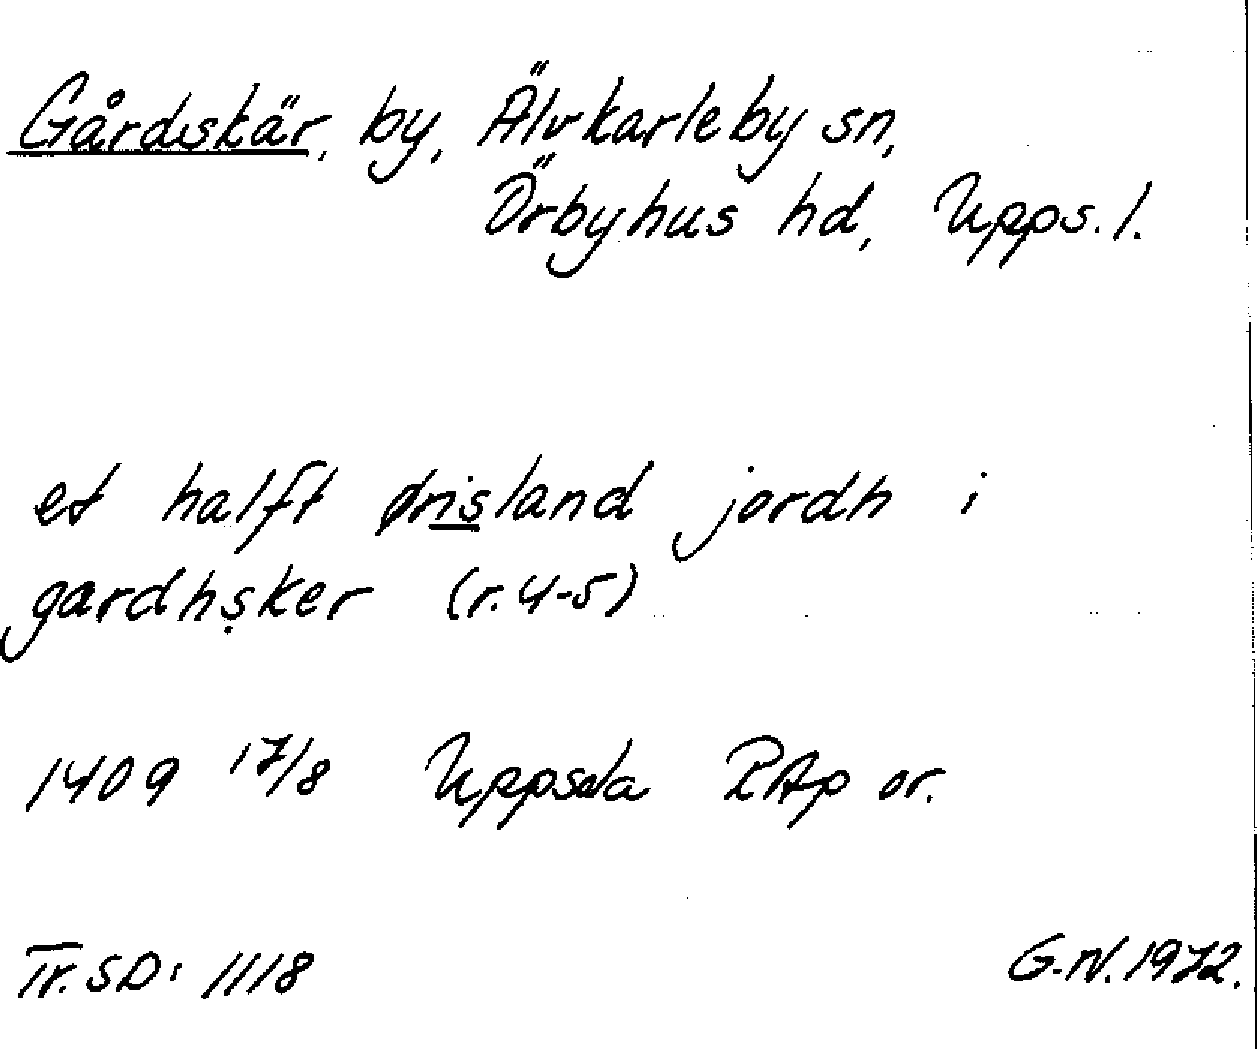 Gårdskär, by, Älvkarleby sn,
Örbyhus hd, Upps. l.
et halft ørisland jordh i
gardhsker (r. 4-5)
1409 17/8 Uppsala RAp or.
Tr. SD: 1118
G.N. 1972.